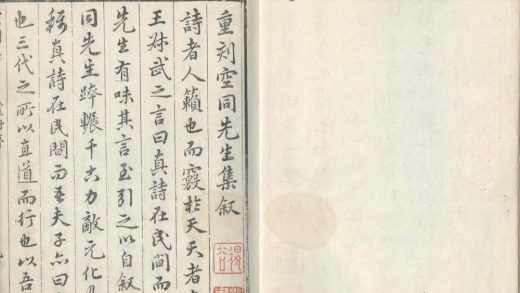 重刻空同先生集叙
詩者人籟也而竅於天天者
王叔武之言曰真詩在民間而
先生有味其言至引之以自叙
同先生跨輾千古力敵元化
稱真詩在民間而吾夫子亦曰
也三代之所以直道而行也以吾